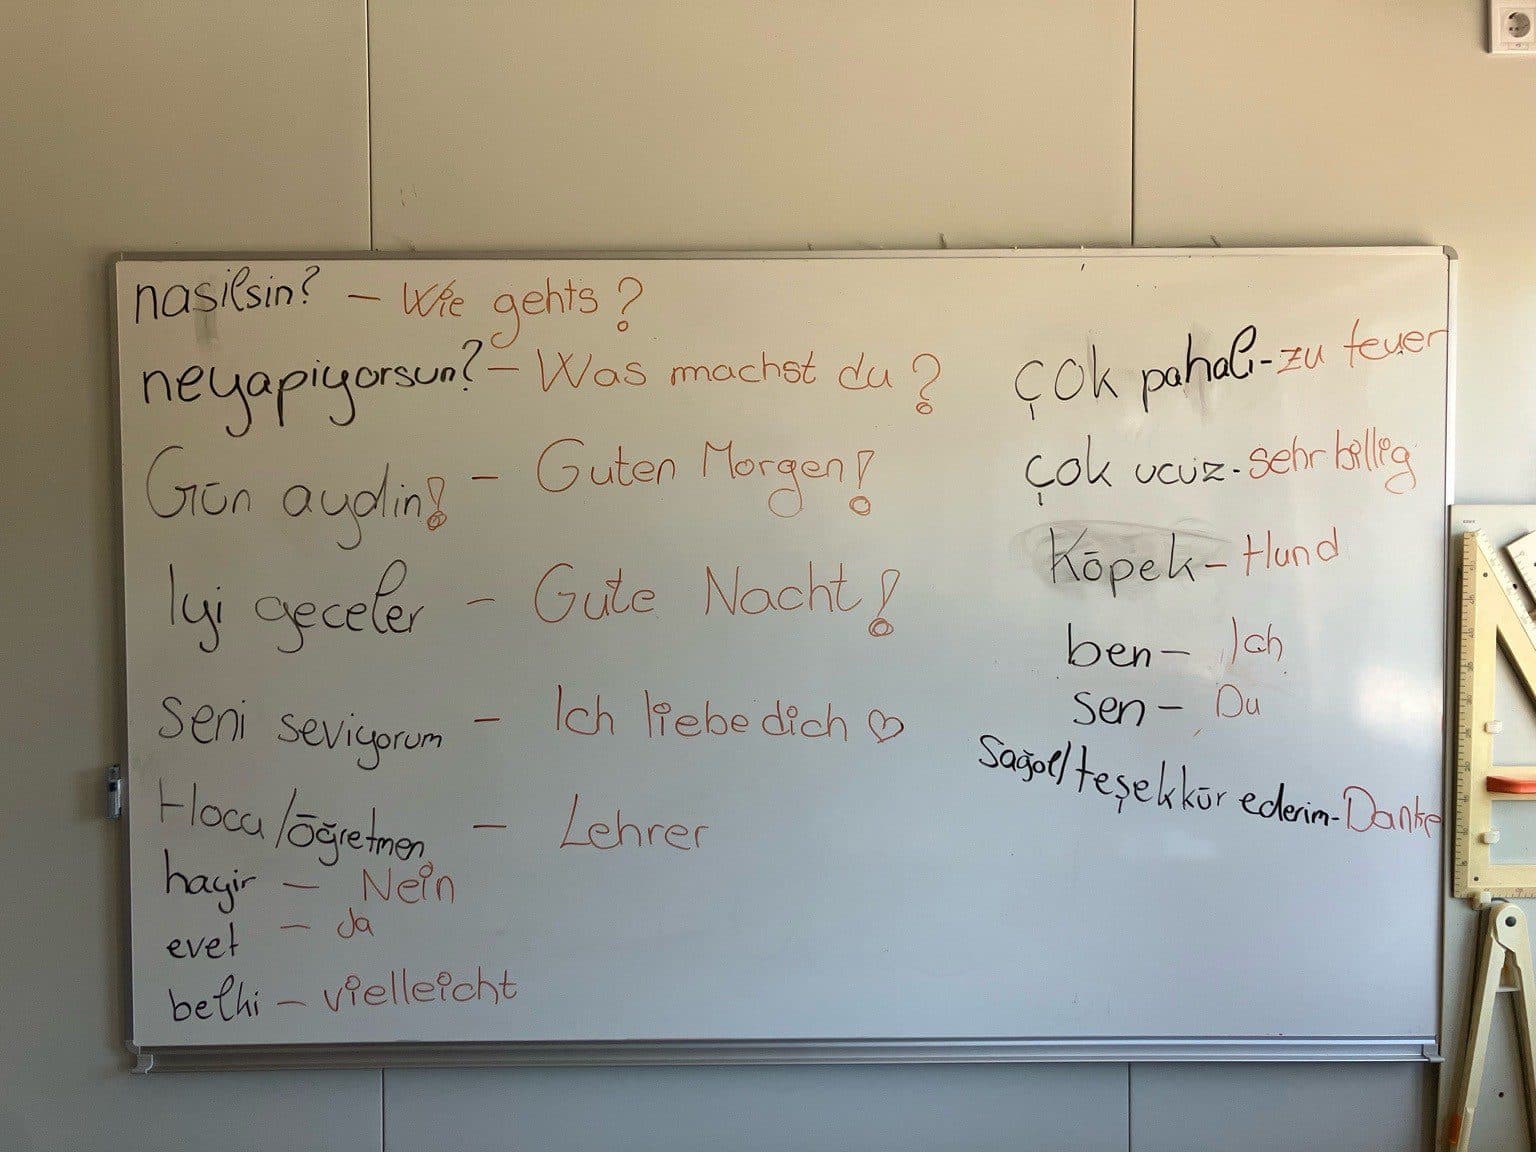 nasilsin? - Wie gehts?
neyapiyorsun? - Was machst du?
Gūn aydin! - Guten Morgen!
Iyi geceler - Gute Nacht!
Seni seviyorum - Ich liebe dich ♡
Hoca/ōğretmen - Lehrer
hayir - Nein
evet - Ja
belki - vielleicht
çok pahalı - zu teuer
çok ucuz - sehr billig
Kōpek - Hund
ben - Ich
sen - Du
Sağol/teşekkūr ederim - Danke